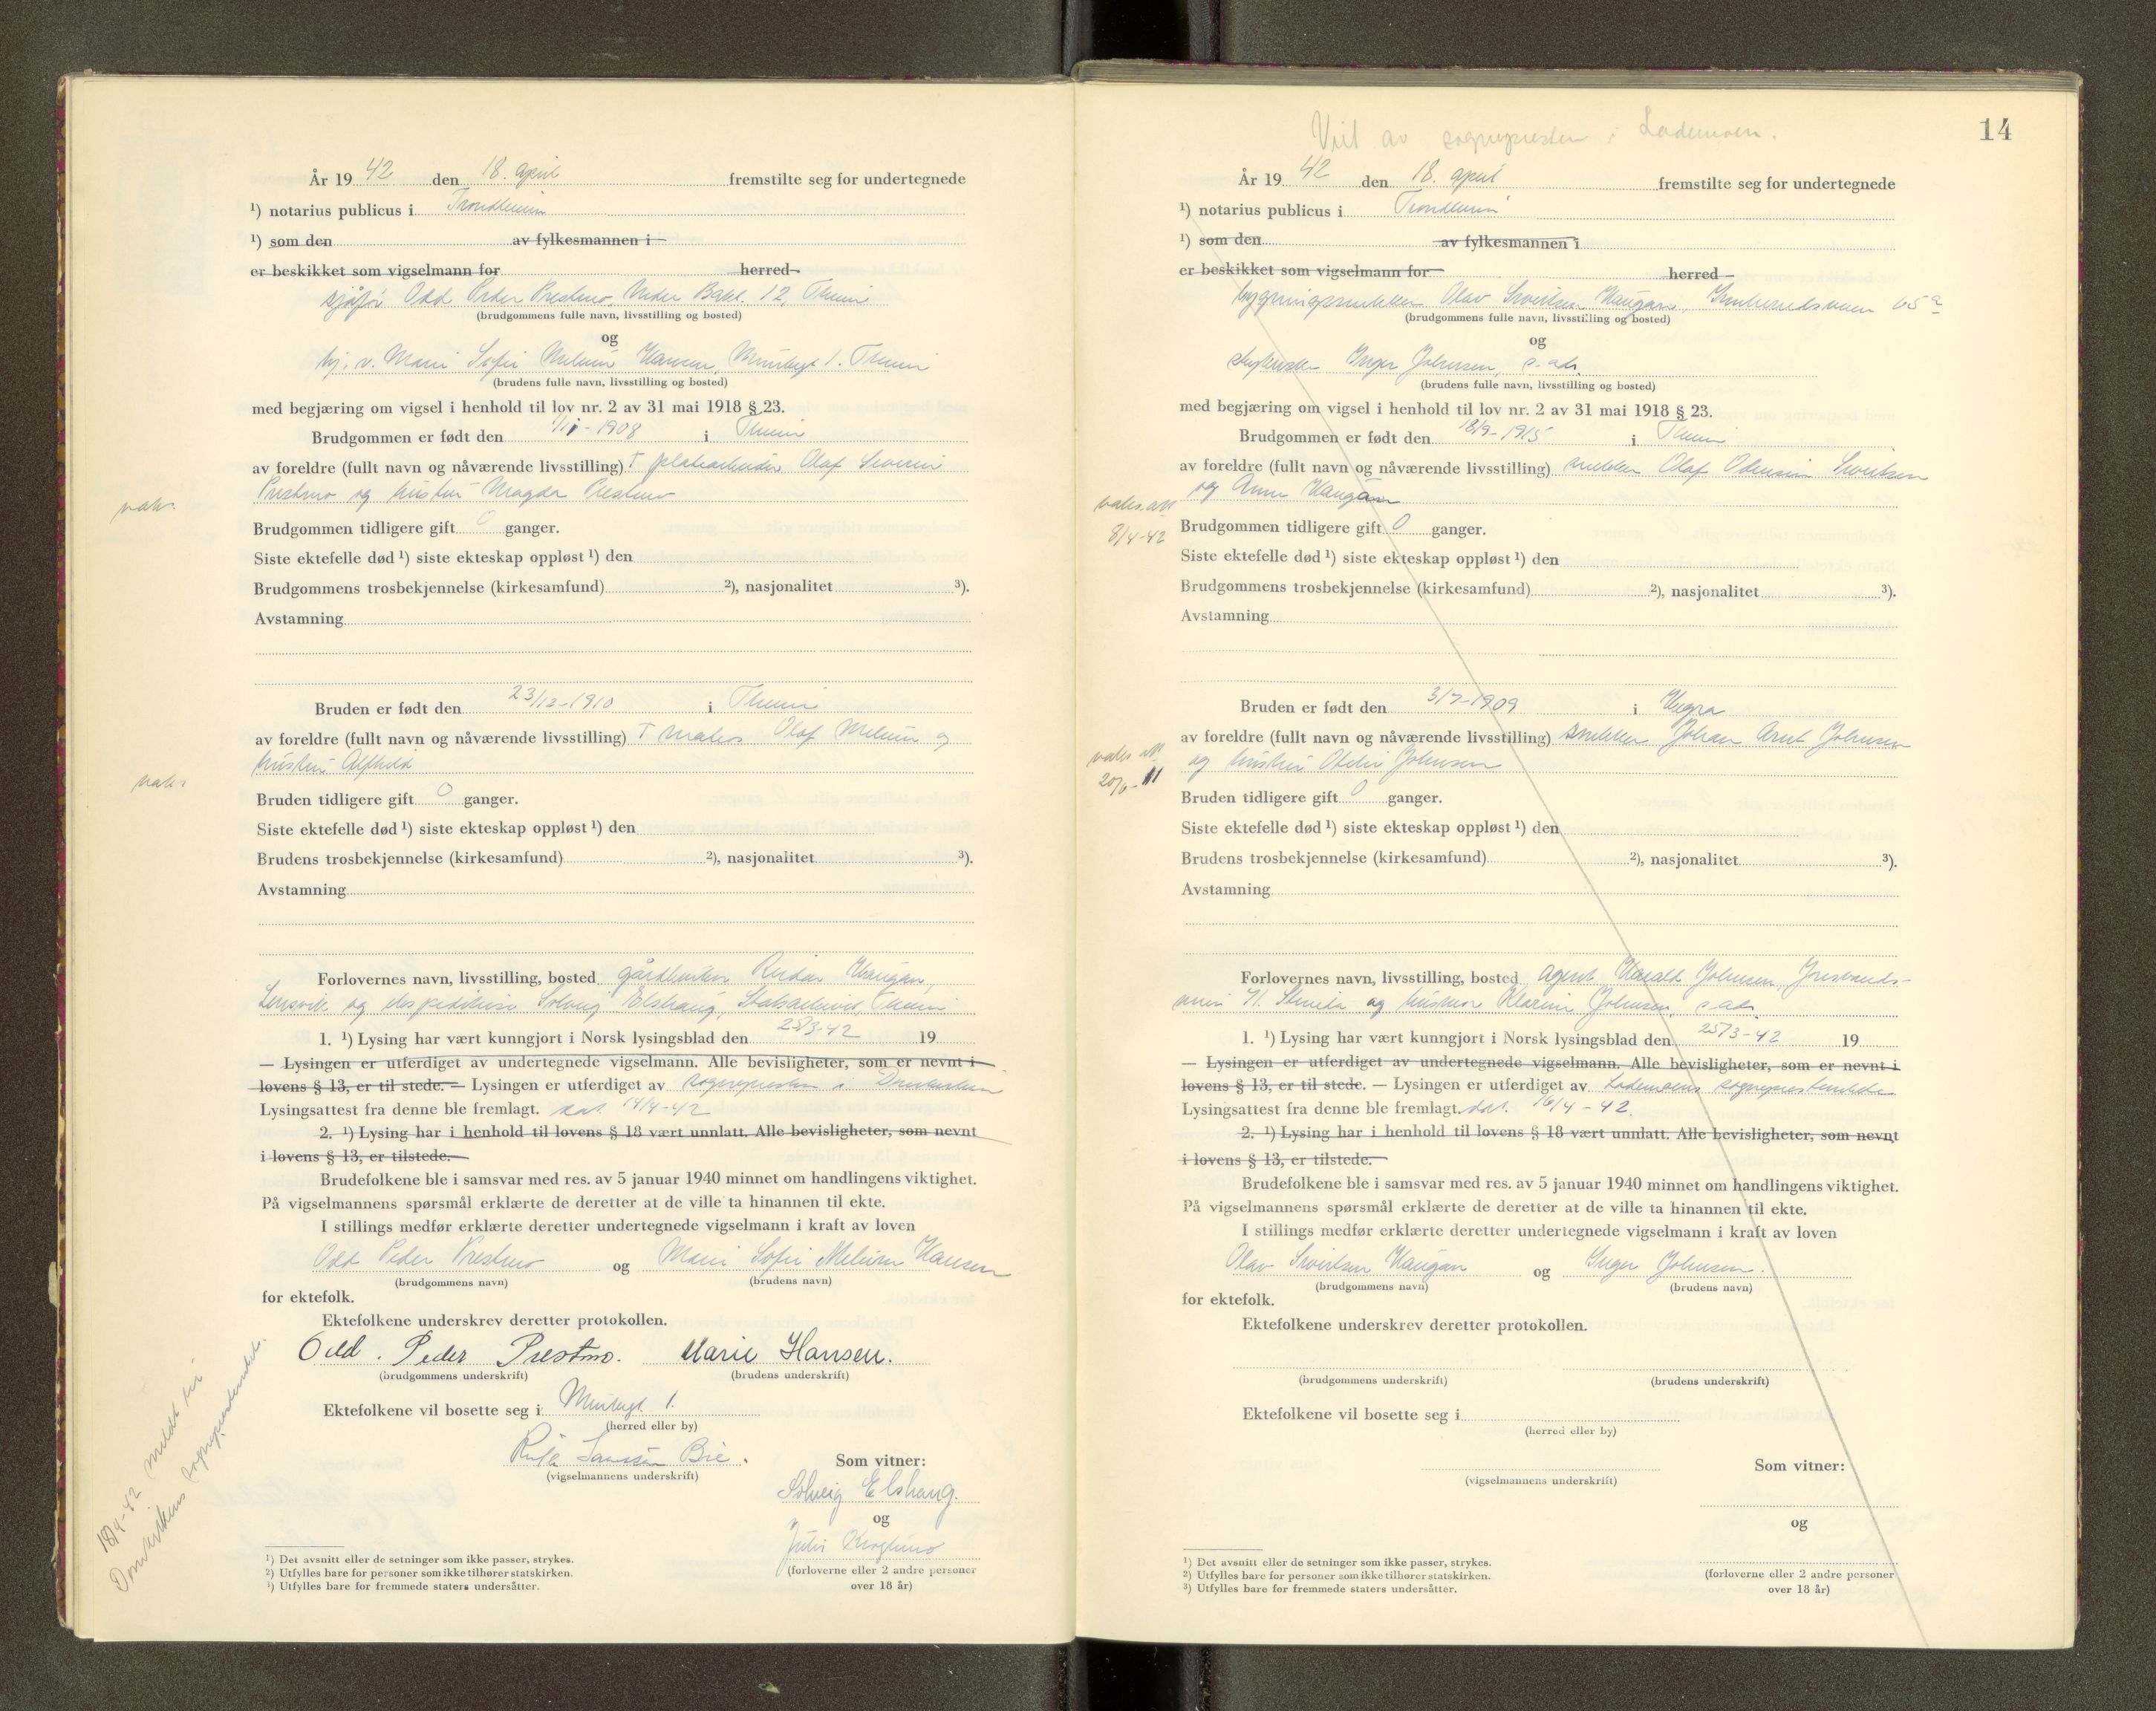 År 19 42 den 18. april fremstilte seg for undertegnede
¹) notarius publicus i Trondheim
¹) som den av fylkesmannen i
er beskikket som vigselmann for herred
sjåfør Odd Peder Prestmo, Nedre Bakl. 12, Theim
(brudgommens fulle navn, livsstilling og bosted)
og
hj. v. Marie Sofie Melum Hansen, 1. Theim
(brudens fulle navn, livsstilling og bosted)
med begjæring om vigsel i henhold til lov nr. 2 av 31 mai 1918 § 23.
Brudgommen er født den 1908 i Theim
av foreldre (fullt navn og nåværende livsstilling) † platearbeider Olaf Severin
Prestmo og hustru Magda Prestmo
vaks.
Brudgommen tidligere gift 0 ganger.
Siste ektefelle død ¹) siste ekteskap oppløst ¹) den
Brudgommens trosbekjennelse (kirkesamfund) ²), nasjonalitet ³).
Avstamning
Bruden er født den 23/12-1910 i Theim
av foreldre (fullt navn og nåværende livsstilling) † matros Olaf Melum og
hustru Alfhild
vaks.
Bruden tidligere gift 0 ganger.
Siste ektefelle død ¹) siste ekteskap oppløst ¹) den
Brudens trosbekjennelse (kirkesamfund) ²), nasjonalitet ³).
Avstamning
Forlovernes navn, livsstilling, bosted gårdbruker Reidar Haugan,
Lensvik og ekspeditrise Solveig Elshaug, Theim
1. ¹) Lysing har vært kunngjort i Norsk lysingsblad den 25/3-42 19
— Lysingen er utferdiget av undertegnede vigselmann. Alle bevisligheter, som er nevnt i
lovens § 13, er til stede. — Lysingen er utferdiget av sognepresten i Domkirken
Lysingsattest fra denne ble fremlagt. dat. 14/4-42
2. ¹) Lysing har i henhold til lovens § 18 vært unnlatt. Alle bevisligheter, som nevnt
i lovens § 13, er tilstede.
Brudefolkene ble i samsvar med res. av 5 januar 1940 minnet om handlingens viktighet.
På vigselmannens spørsmål erklærte de deretter at de ville ta hinannen til ekte.
I stillings medfør erklærte deretter undertegnede vigselmann i kraft av loven
Odd Peder Prestmo og Marie Sofie Melum Hansen
(brudgommens navn) (brudens navn)
for ektefolk.
Ektefolkene underskrev deretter protokollen.
Odd. Peder Prestmo. Marie Hansen.
(brudgommens underskrift) (brudens underskrift)
Ektefolkene vil bosette seg i 1.
(herred eller by)
(vigselmannens underskrift) Som vitner:
Solveig Elshaug.
og
(forloverne eller 2 andre personer
over 18 år)
18/4-42 meldt til
Domkirkens sogneprestembede.
¹) Det avsnitt eller de setninger som ikke passer, strykes.
²) Utfylles bare for personer som ikke tilhører statskirken.
³) Utfylles bare for fremmede staters undersåtter.
14
Viet av sognepresten i Lademoen.
År 19 42 den 18. april fremstilte seg for undertegnede
¹) notarius publicus i Trondheim
¹) som den av fylkesmannen i
er beskikket som vigselmann for herred
bygningssnekker Olav Sivertsen Haugan, Innherredsveien 65 a
(brudgommens fulle navn, livsstilling og bosted)
og
Inger Johnsen, s. ads.
(brudens fulle navn, livsstilling og bosted)
med begjæring om vigsel i henhold til lov nr. 2 av 31 mai 1918 § 23.
Brudgommen er født den 18/9-1915 i Theim
av foreldre (fullt navn og nåværende livsstilling) snekker Olaf Odensius Sivertsen
og Anna Haugan
vaks. att.
8/4-42
Brudgommen tidligere gift 0 ganger.
Siste ektefelle død ¹) siste ekteskap oppløst ¹) den
Brudgommens trosbekjennelse (kirkesamfund) ²), nasjonalitet ³).
Avstamning
Bruden er født den 3/7-1909 i Hegra
av foreldre (fullt navn og nåværende livsstilling) snekker Johan Arnt Johnsen
og hustru Otelie Johnsen
vaks att.
Bruden tidligere gift 0 ganger.
Siste ektefelle død ¹) siste ekteskap oppløst ¹) den
Brudens trosbekjennelse (kirkesamfund) ²), nasjonalitet ³).
Avstamning
Forlovernes navn, livsstilling, bosted agent Harald Johnsen,
og husmor Klarine Johnsen, s. ads.
1. ¹) Lysing har vært kunngjort i Norsk lysingsblad den 25/3-42 19
— Lysingen er utferdiget av undertegnede vigselmann. Alle bevisligheter, som er nevnt i
lovens § 13, er til stede. — Lysingen er utferdiget av Lademoens sogneprestembede
Lysingsattest fra denne ble fremlagt. dat. 16/4-42.
2. ¹) Lysing har i henhold til lovens § 18 vært unnlatt. Alle bevisligheter, som nevnt
i lovens § 13, er tilstede.
Brudefolkene ble i samsvar med res. av 5 januar 1940 minnet om handlingens viktighet.
På vigselmannens spørsmål erklærte de deretter at de ville ta hinannen til ekte.
I stillings medfør erklærte deretter undertegnede vigselmann i kraft av loven
Olav Sivertsen Haugan og Inger Johnsen.
(brudgommens navn) (brudens navn)
for ektefolk.
Ektefolkene underskrev deretter protokollen.
(brudgommens underskrift) (brudens underskrift)
Ektefolkene vil bosette seg i
(herred eller by)
Som vitner:
(vigselmannens underskrift)
og
(forloverne eller 2 andre personer
over 18 år)
¹) Det avsnitt eller de setninger som ikke passer, strykes.
²) Utfylles bare for personer som ikke tilhører statskirken.
³) Utfylles bare for fremmede staters undersåtter.